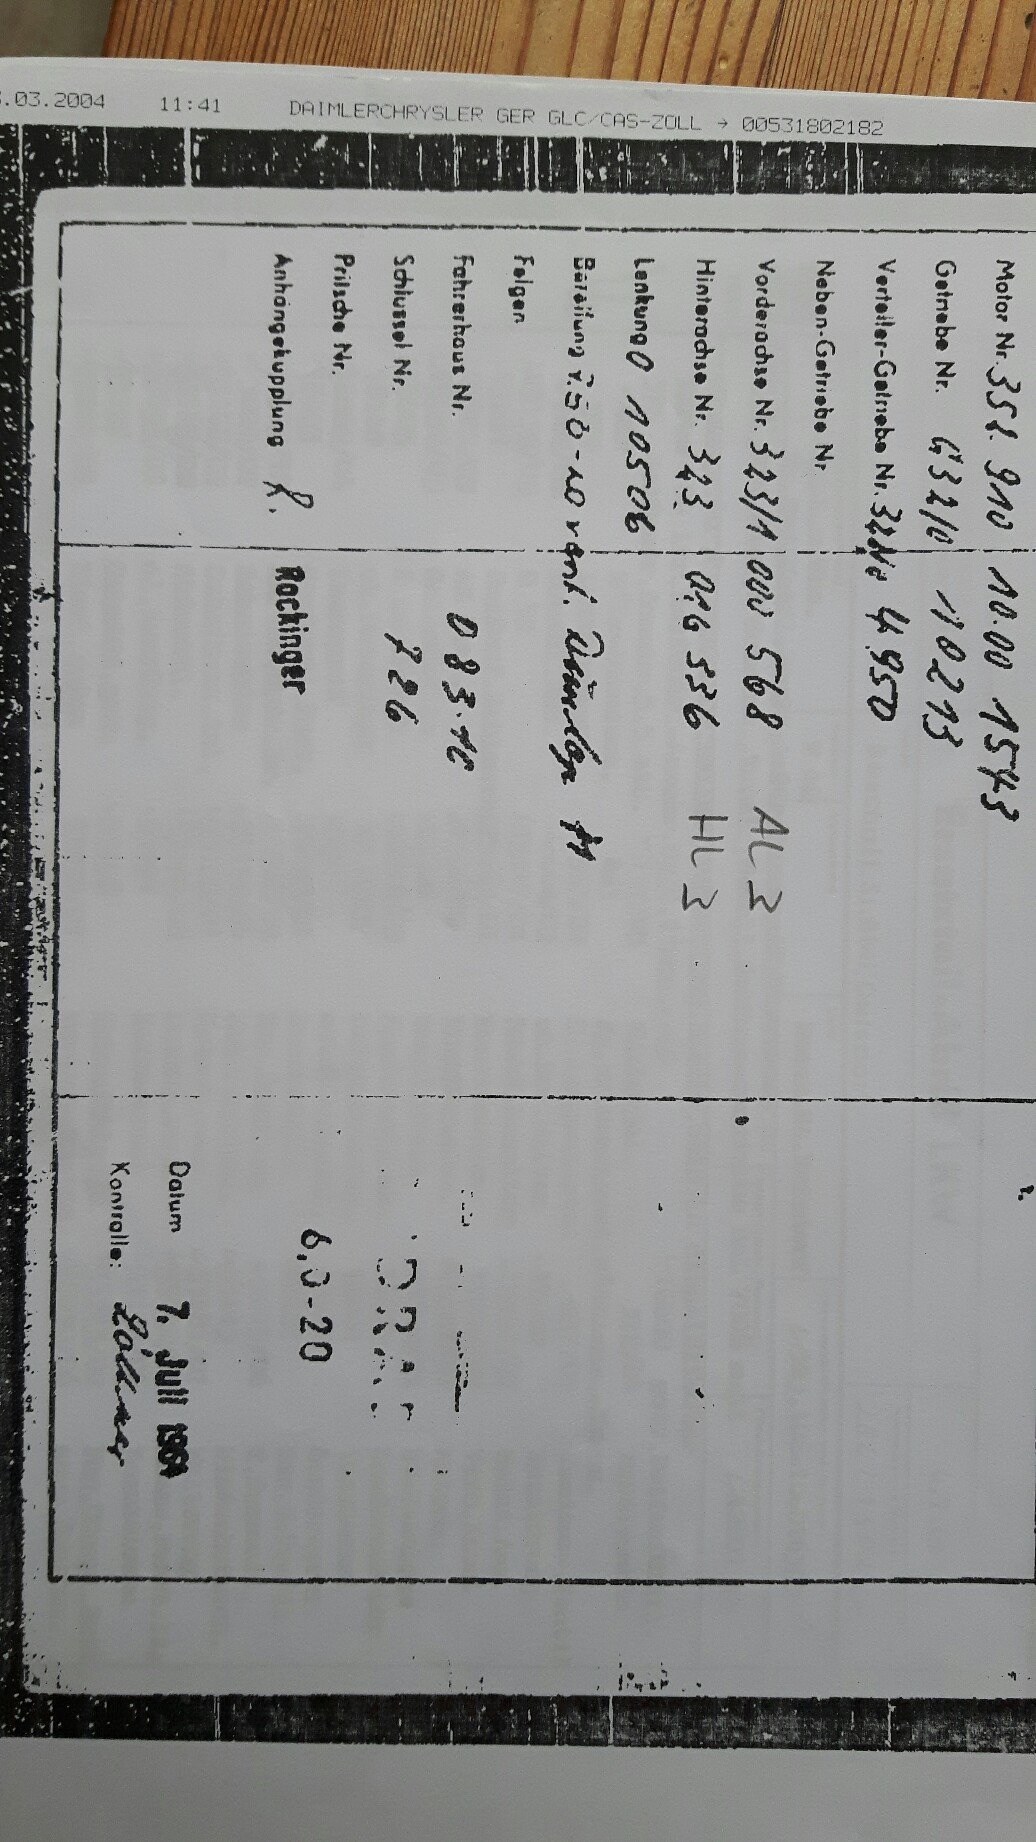 .03.2004 11:41 DAIMLERCHRYSLER GER GLC/CAS-ZOLL → 00531802182
Motor Nr. 352.910 10.00 1543
Getriebe Nr. G32/0 10213
Verteiler-Getriebe Nr. 4950
Neben-Getriebe Nr.
Vorderachse Nr. 323/1 000 568 AL 3
Hinterachse Nr. 323 016 536 HL 3
Lenkung 0 10506
Bereifung Dunlop
Felgen
Fahrerhaus Nr. 083.10
Schlüssel Nr. 726
Pritsche Nr.
6,0-20
Anhängekupplung R. Rockinger
Datum 7. Juli
Kontrolle: